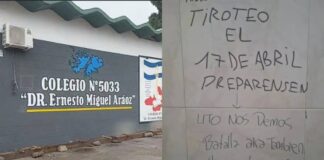 COLEGIO N°5033
"DR. Ernesto Miguel Aráoz"
TIROTEO
EL
17 DE ABRIL
PREPARENSEN
LITO NOS Demos
Batalla